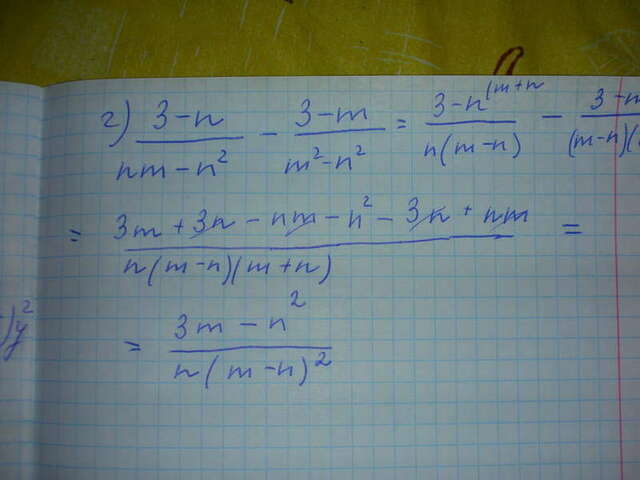 г) (3-n)/(nm-n²) - (3-m)/(m²-n²) = (3-n^(m+n)/(n(m-n)) - (3-m)/((m-n)(
= (3m+3n-nm-n²-3n+nm)/(n(m-n)(m+n)) =
= (3m-n²)/(n(m-n)²)
)y²